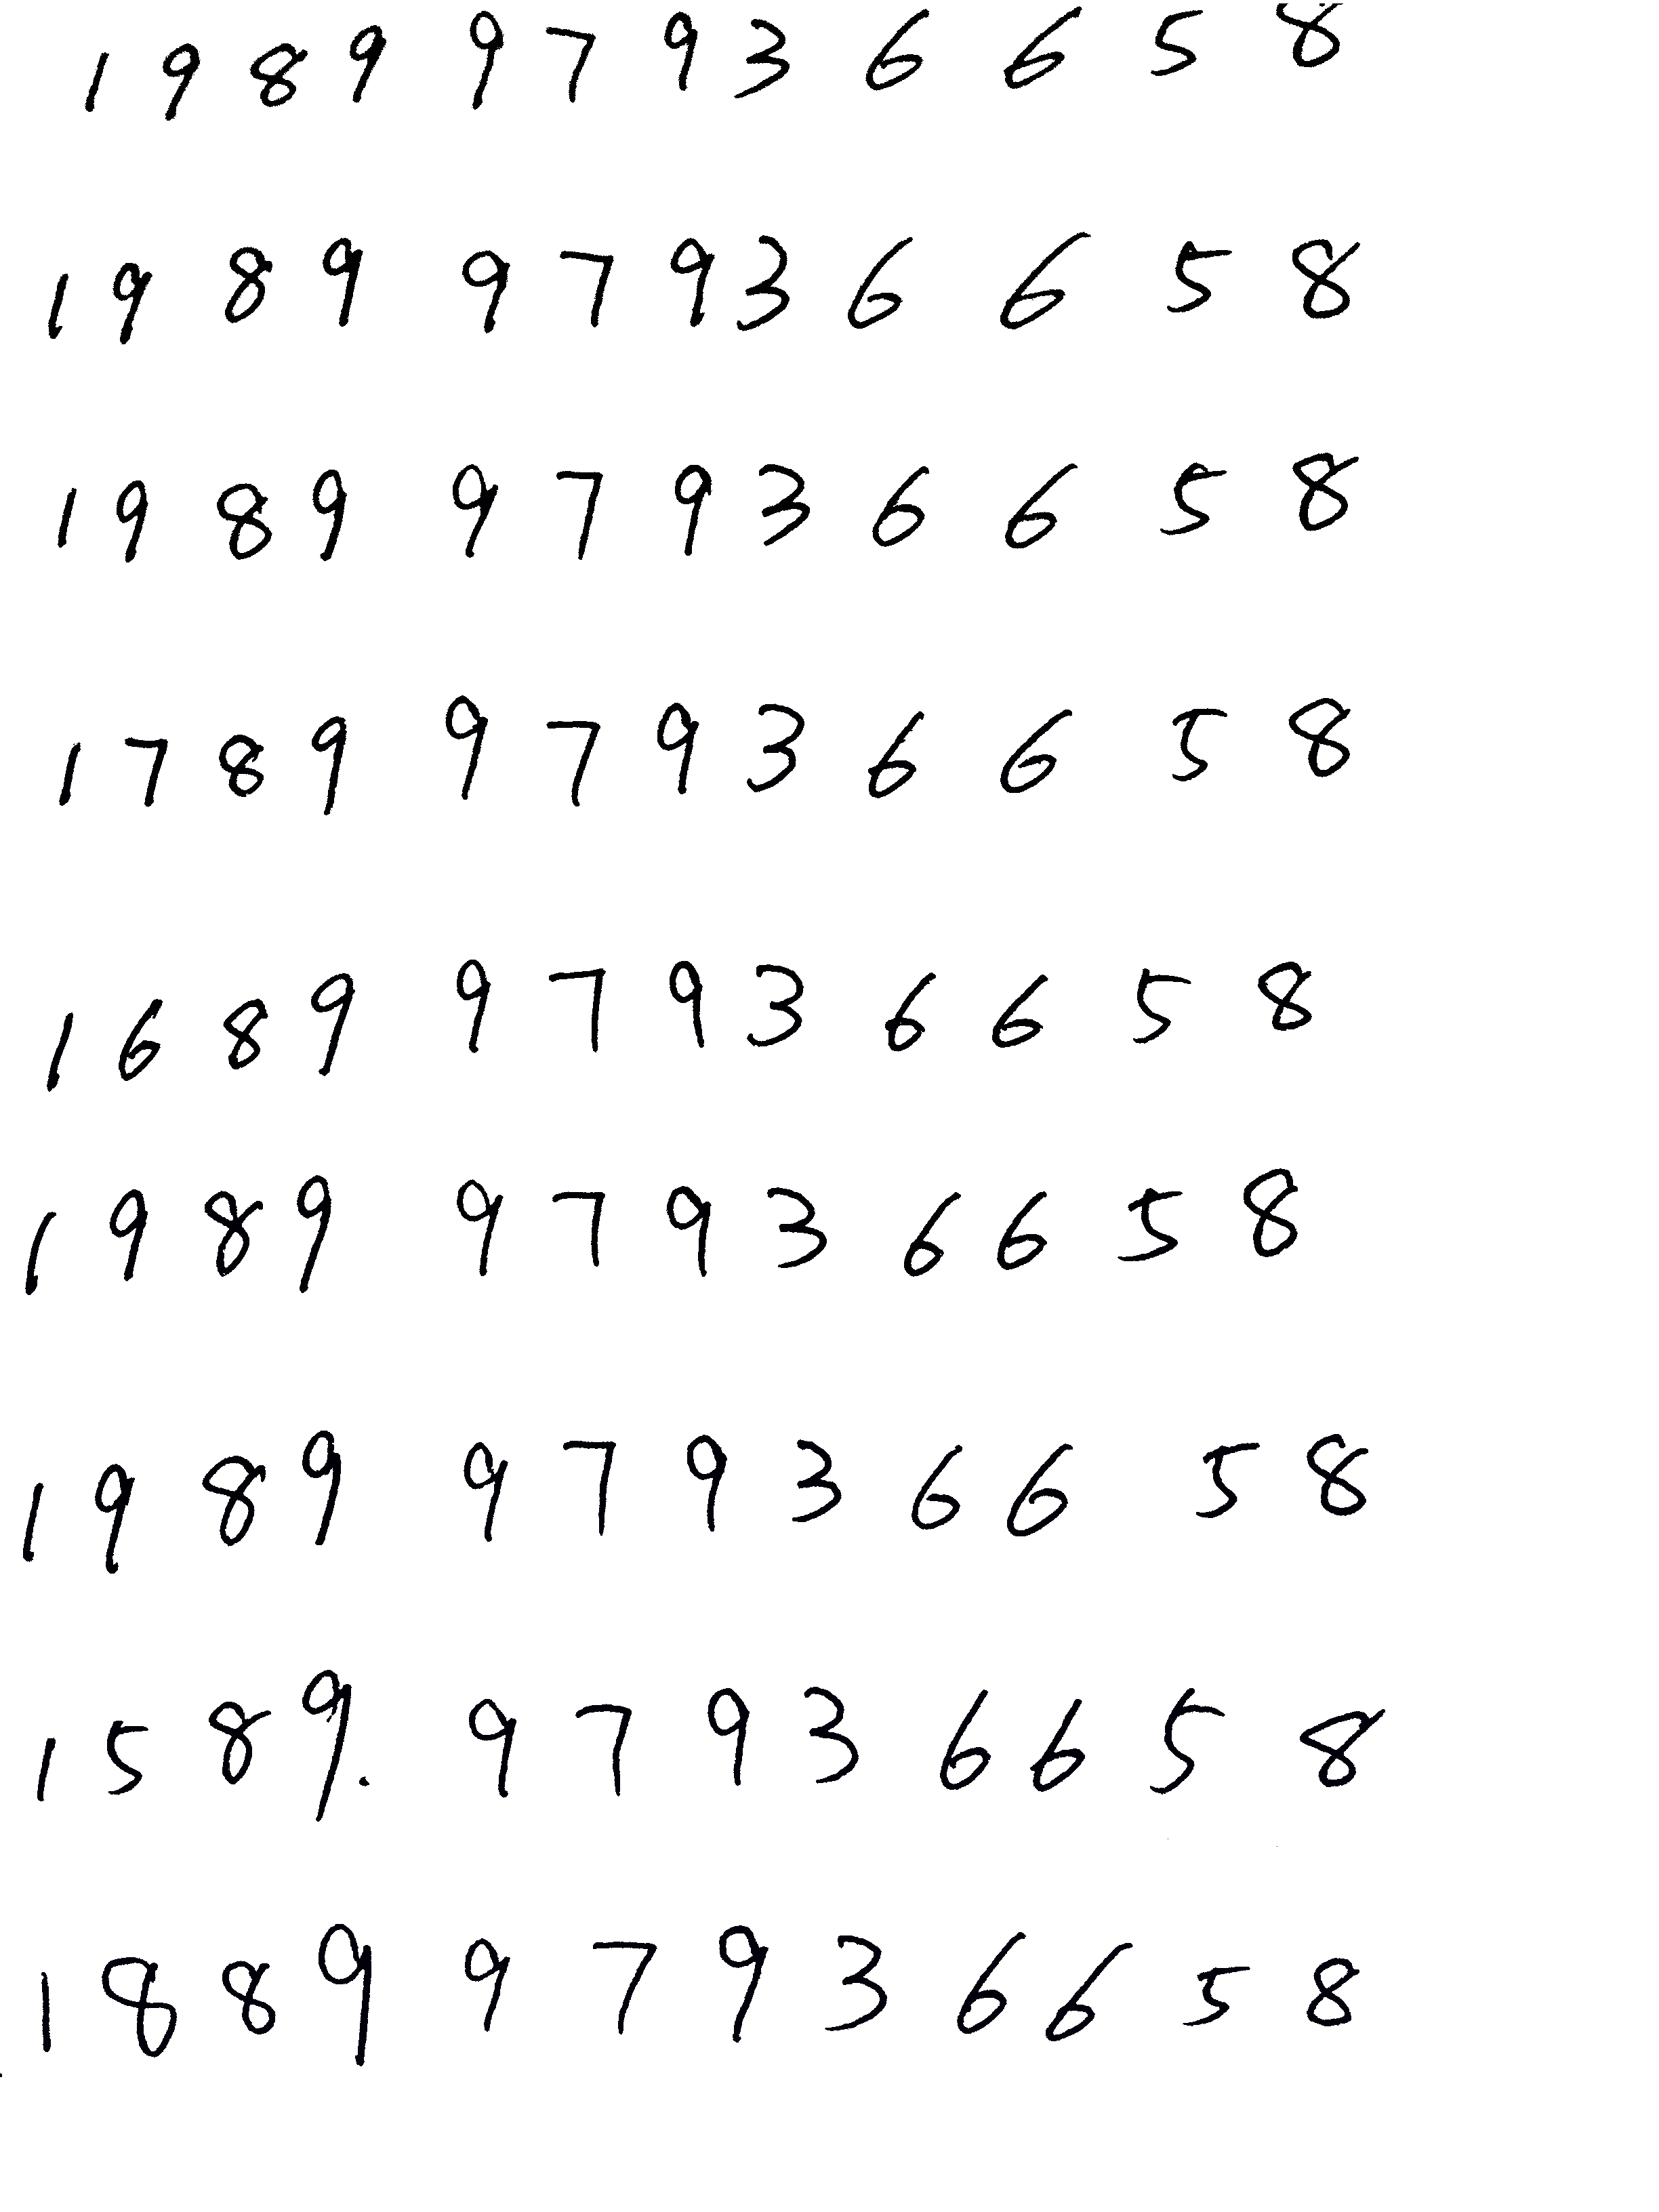 1 9 8 9 9 7 9 3 6 6 5 8
1 9 8 9 9 7 9 3 6 6 5 8
1 9 8 9 9 7 9 3 6 6 5 8
1 7 8 9 9 7 9 3 6 6 5 8
1 6 8 9 9 7 9 3 6 6 5 8
1 9 8 9 9 7 9 3 6 6 5 8
1 9 8 9 9 7 9 3 6 6 5 8
1 5 8 9. 9 7 9 3 6 6 5 8
1 8 8 9 9 7 9 3 6 6 5 8